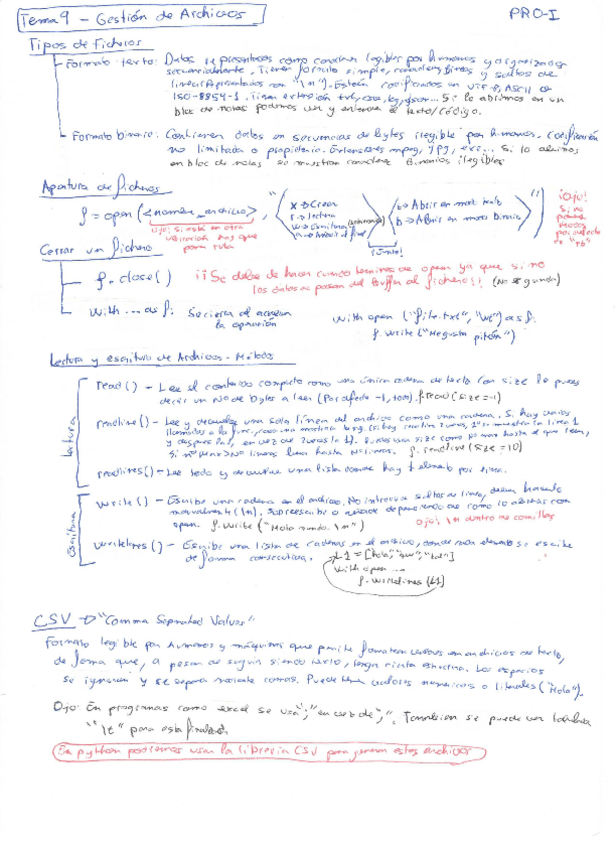 Tema 9 - Gestión de Archivos
PRO-I
Tipos de ficheros
Formato texto: Datos representados como caracteres legibles por humanos y organizados
secuencialmente. Tienen formato simple, caracteres, líneas y saltos de
línea (Representados con "\n"). Están codificados en UTF-8, ASCII o
ISO-8859-1. Tienen extensión txt, csv, log, json... Si lo abrimos en un
bloc de notas podemos ver y entender el texto/código.
Formato binario: Contienen datos en secuencias de bytes ilegible por humanos. Codificación
no limitada o propietaria. Extensiones mpeg, jpg, exe... Si lo abrimos
en bloc de notas se muestran caracteres binarios ilegibles
Apertura de ficheros
f = open(<nombre_archivo>, "
x → Crear
r → lectura
w → Escritura
a → Añadir al final
t → Abrir en modo texto
b → Abrir en modo binario
")
¡Ojo! Si está en otra
ubicación hay que
poner ruta
¡Ojo!
Si no
ponemos
modos
por defecto
es
Cerrar un fichero
f.close()
¡¡Se debe de hacer cuando terminas de operar ya que si no
los datos no pasan del buffer al fichero!! (No se guardan)
with ... as f: Se cierra al acabar
la operación
with open ("file.txt", "wt") as f:
f.write("Me gusta pitón")
Lectura y escritura de Archivos - Métodos
Lectura
read() - Lee el contenido completo como una única cadena de texto. Con size le puedes
decir un nº de bytes a leer (Por defecto -1, todo). f.read(size=-1)
readline() - Lee y devuelve una sola línea del archivo como una cadena. Si hay varias
llamadas a la func,
y después la 2, en vez de 2 veces la 1).
f.readline(size=10)
readlines() - Lee todo y devuelve una lista donde hay 1 elemento por línea.
Escritura
write() - Escribe una cadena en el archivo. No introduce saltos de línea, deben hacerlo
manualmente (\n). Sobreescribe o añade dependiendo de como lo abrimos con
open. f.write("Hola mundo. \n")
Ojo: \n dentro de comillas
writelines() - Escribe una lista de cadenas en el archivo, donde cada elemento se escribe
de forma consecutiva.
L1 = ["hola",
with open ...
f.writelines(L1)
CSV → "Comma Separated Values"
Formato legible por humanos y máquinas que permite formatear valores en archivos de texto,
de forma que, a pesar de seguir siendo texto, tenga cierta estructura. Los espacios
se ignoran y se separa mediante comas. Puede tener valores numericos o literales ("Hola").
Ojo: En programas como excel se usa ";" en vez de ",". Tambien se puede usar tabulador
"\t" para esta finalidad
En python podemos usar la libreria CSV para generar estos archivos